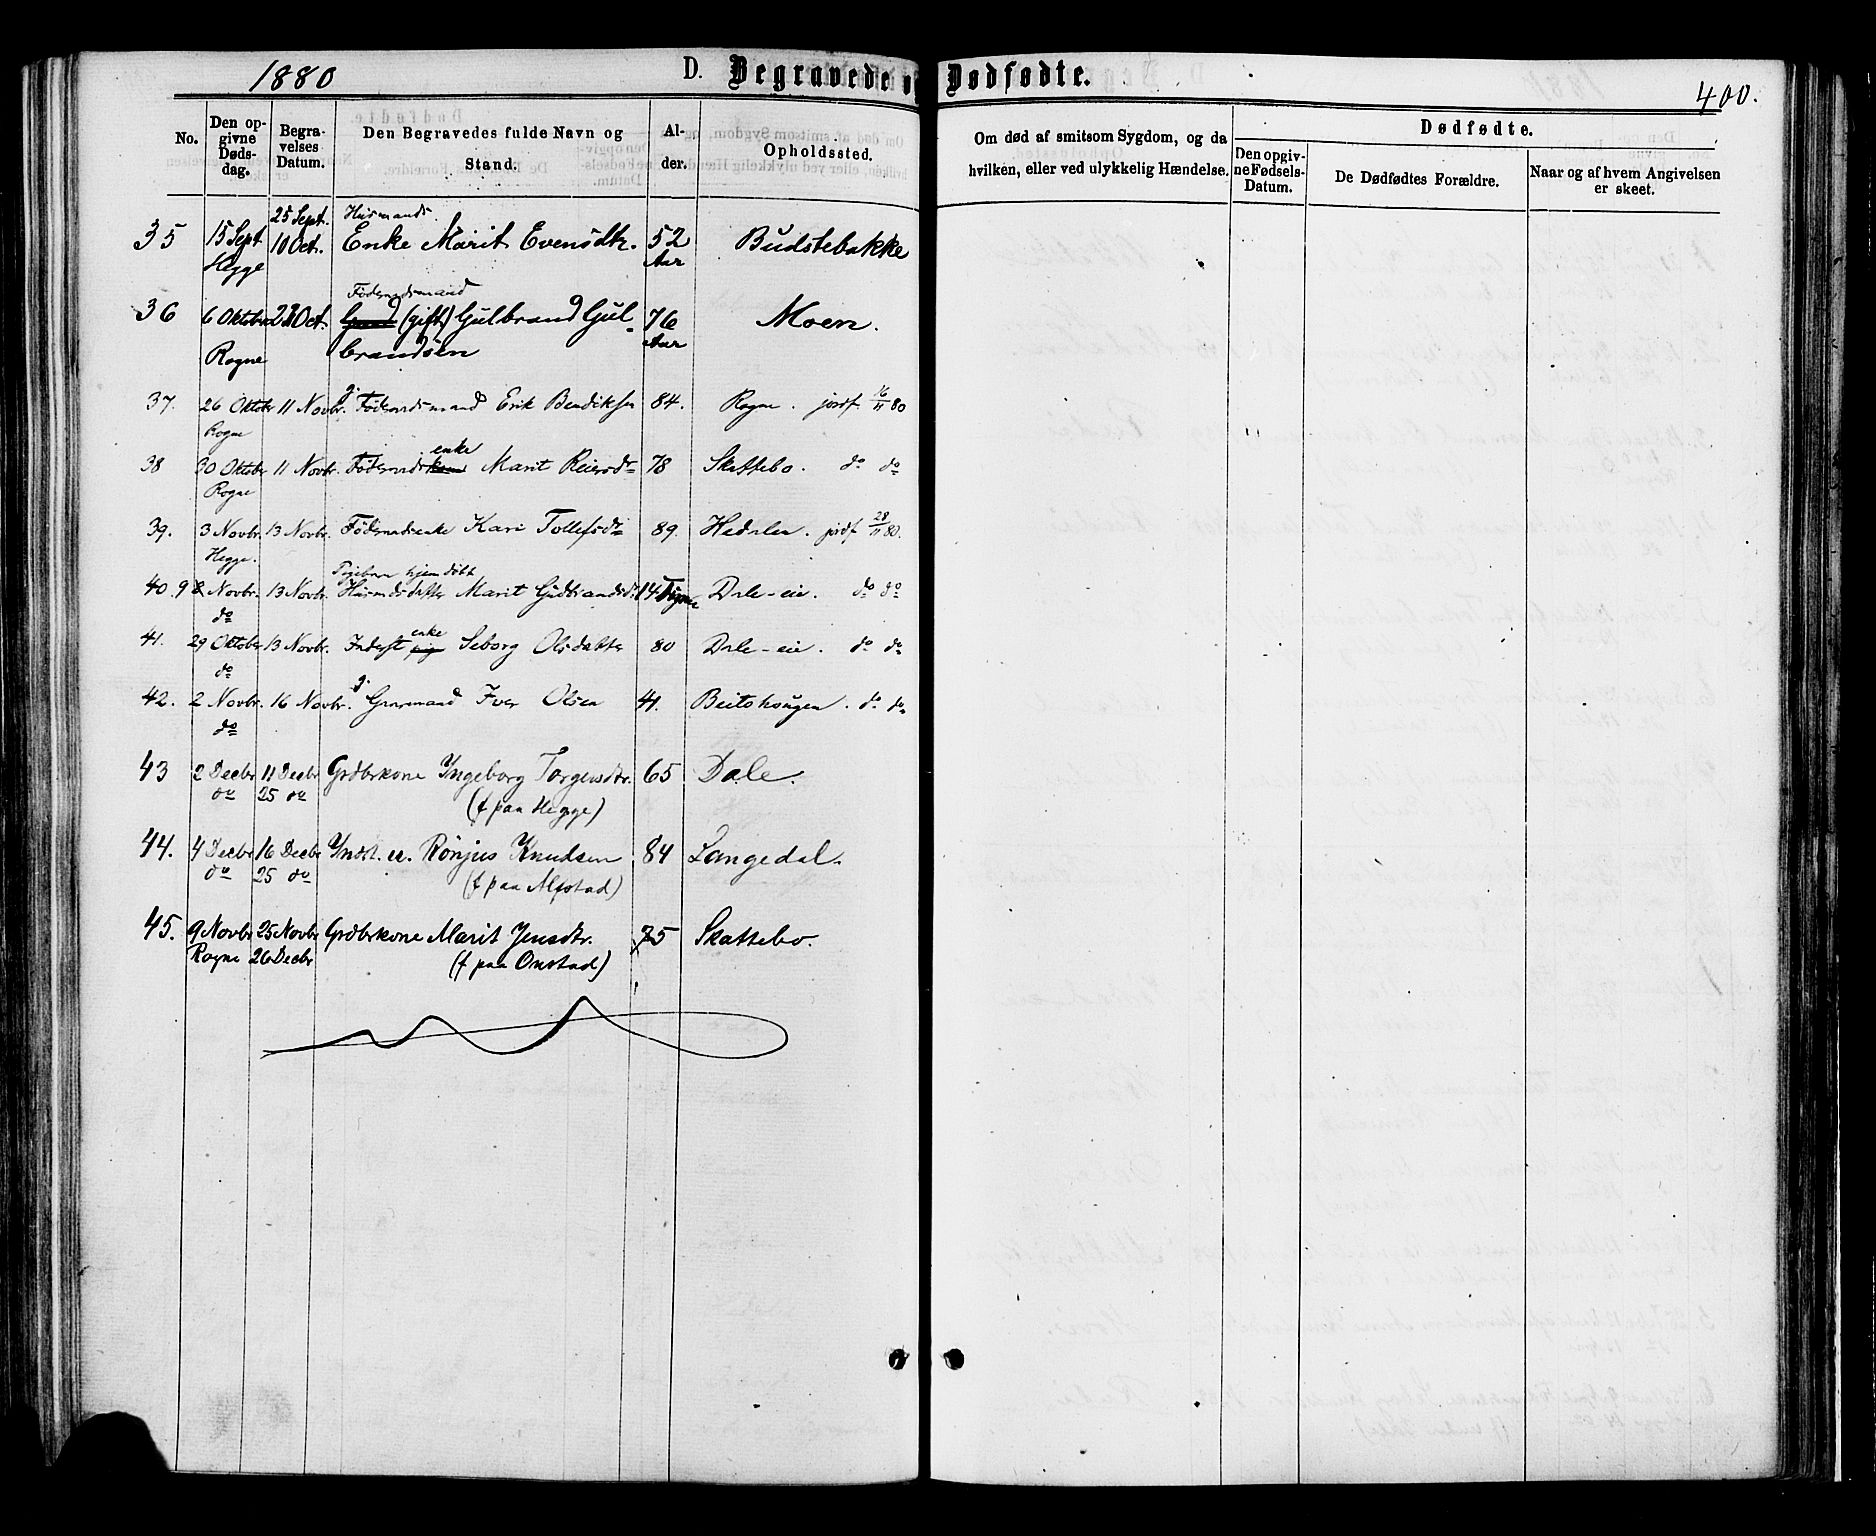 1880 D. Begravede o Dødfødte. 400.
No. Den opgivne Dødsdag. Begravelses Datum. Den Begravedes fulde Navn og Stand. Alder. Opholdssted. Om død af smitsom Sygdom, og da hvilken, eller ved ulykkelig Hændelse. Dødfødte. Den opgivne Fødsels-Datum. De Dødfødtes Forældre. Naar og af hvem Angivelsen er skeet.
25 Sept. Husmands
35 15 Sept 10 Oct. Enke Marit Evensdtr. 52 Budstebakke
Hegge Aar
Föderaadsmand
36 6 Oktober 23 Oct. (gift) Gulbrand Gul- 76 Moen.
Rogne brandsen Aar
37. 26 Oktobr 11 Novbr. g. Föderaadsmand Erik Bendiksen 84. Rogne. jordf. 16/11 80
Rogne
enke
38 30 Oktober 11 Novbr. Föderaads Marit Reiersdr 78 Skattebo. do do
Rogne
39. 3 Novbr. 13 Novbr. Föderaadsenke Kari Tollefsdr 89. Hedalen. jordf 28/11 80.
Hegge.
Pigebarn hjemdöbt
40. 9 Novbr. 13 Novbr. Husmdsdatter Marit Gudbrandsd. 14 Dage Dale-eie. do do
do
enke
41. 29 Oktober 13 Novbr. Inderst Seborg Olsdatter 80 Dale-eie. do do
do
42. 2 Novbr. 16 Novbr. g. Gaarmand Iver Olsen 41. Beitohaugen. do do
do
43 2 Decbr 11 Decbr Grdbrkone Ingeborg Torgersdtr. 65 Dale.
do 25 do (f paa Hegge)
44. 4 Decbr 16 Decbr Indst. e. Rönjus Knudsen 84 Langedal.
do 25 do (f paa Alfstad)
45. 9 Novbr 25 Novbr Grdbrkone Marit Jensdtr. 75 Skattebo.
Rogne 26 Decbr (f paa Onstad)